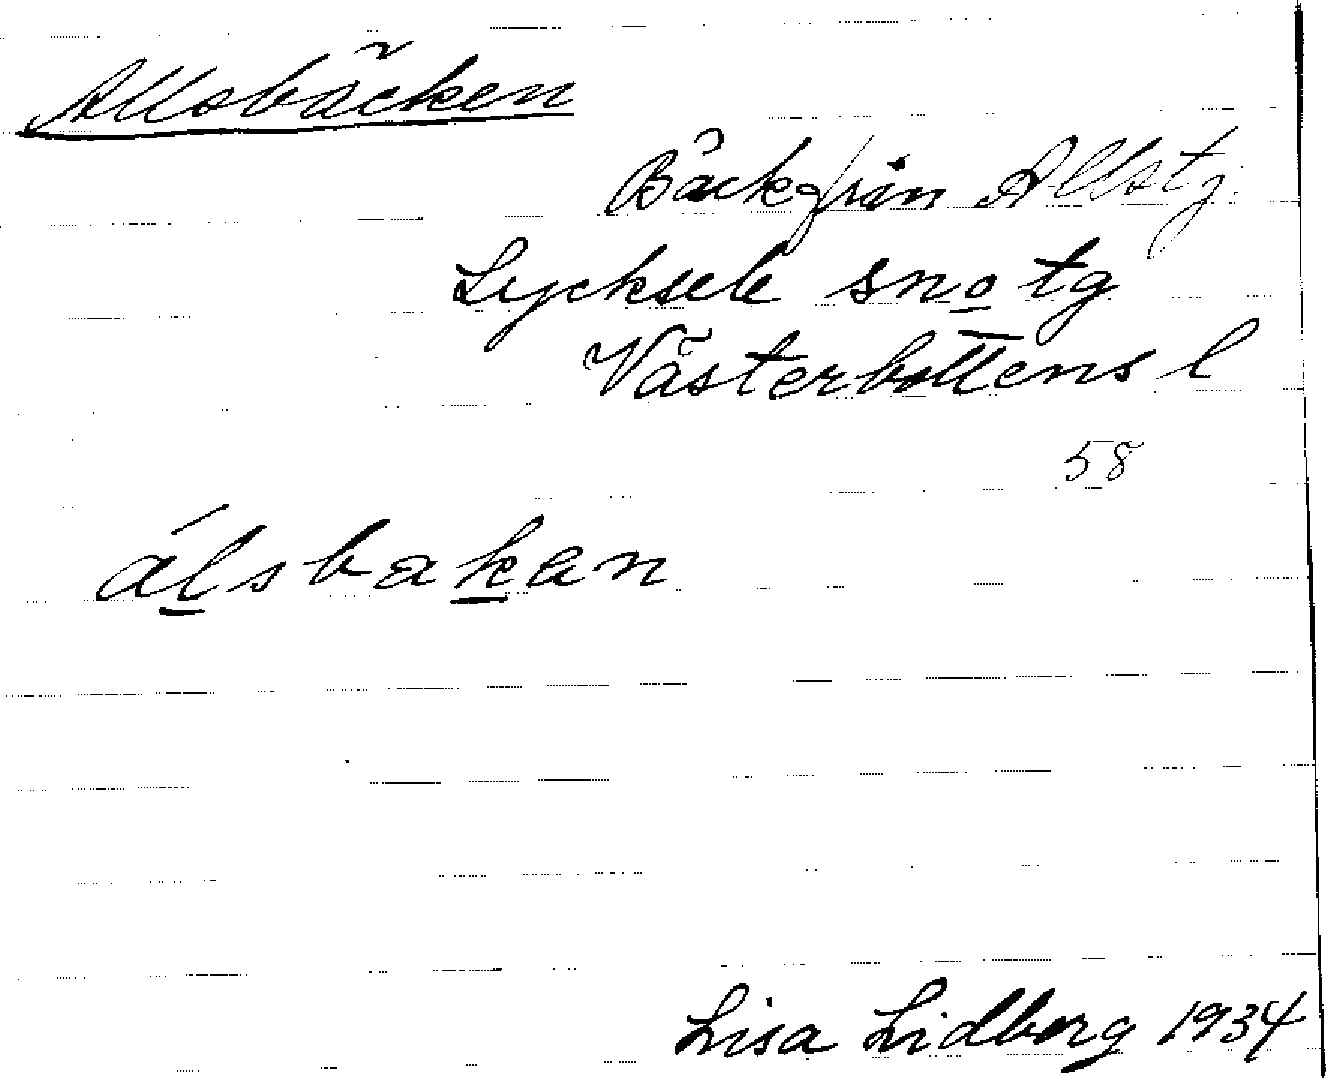 Allsbäcken
Bäck från Allstj.
Lycksele sn o tg
Västerbottens l
58
álsbakan
Lisa Lidberg 1934